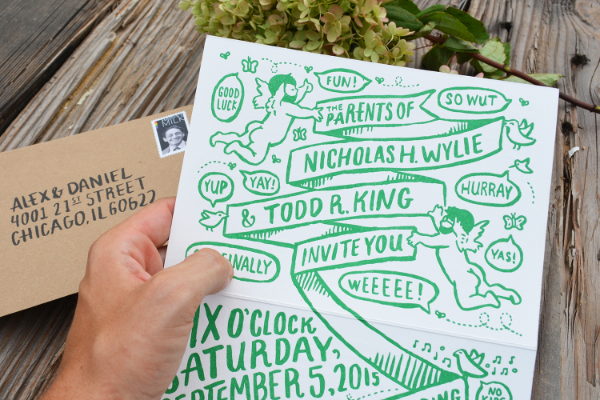 ALEX & DANIEL
4001 21ST STREET
CHICAGO, IL 60622
MILK
FUN!
GOOD
LUCK
THE
PARENTS OF
SO WUT
NICHOLAS H. WYLIE
YUP
YAY!
HURRAY
& TODD R. KING
YAS!
INVITE YOU
FINALLY
WEEEEE!
SIX O'CLOCK
SATURDAY,
SEPTEMBER 5, 2015
NO